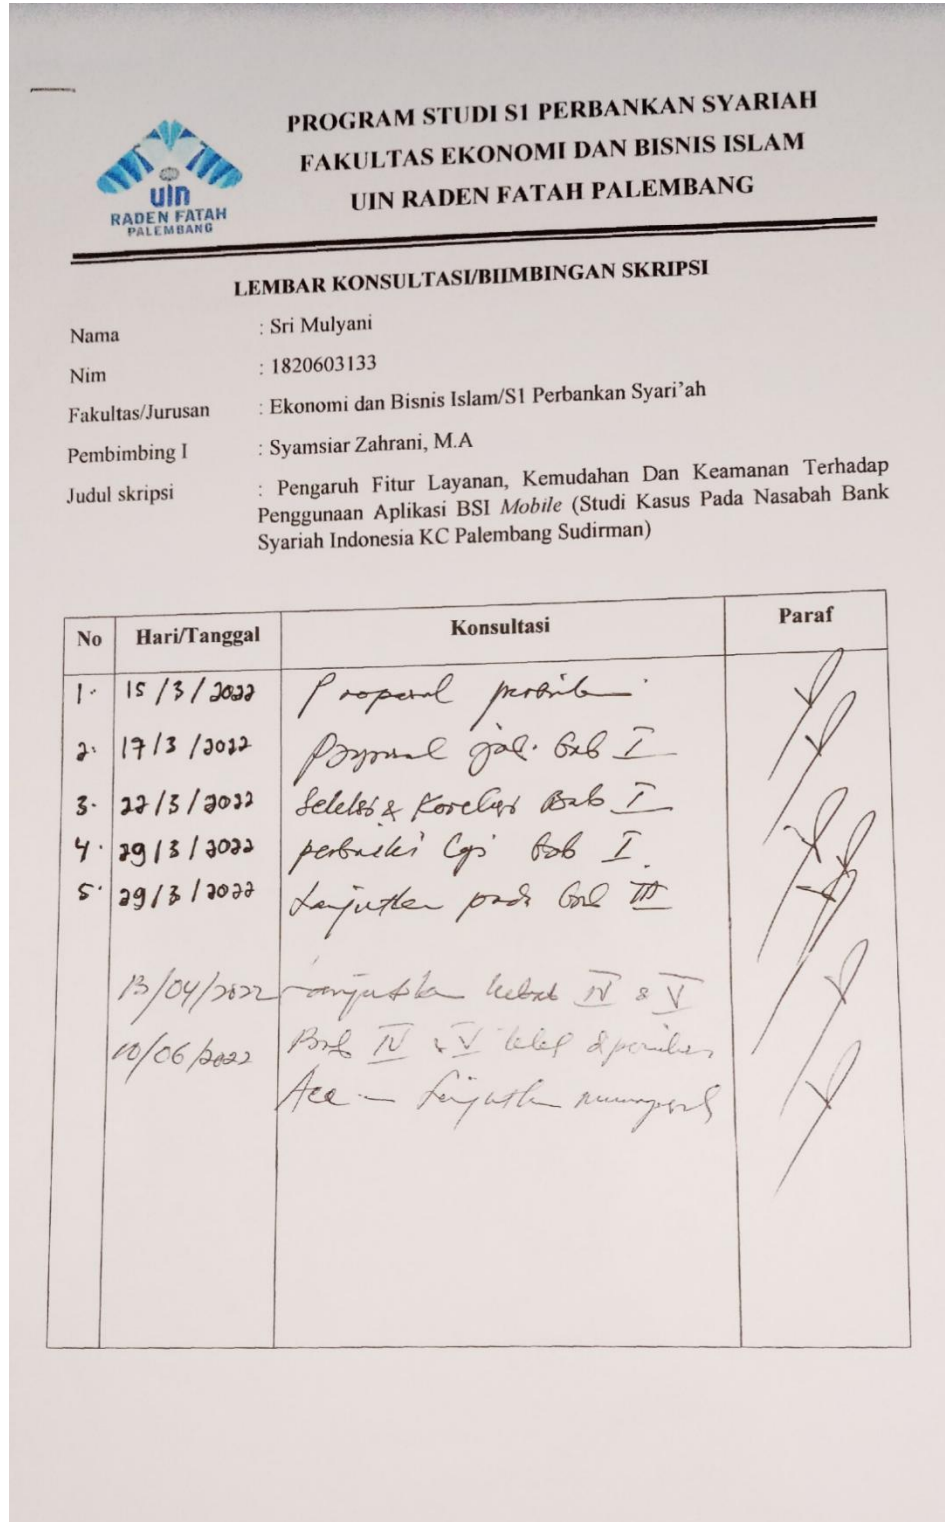 uin
RADEN FATAH
PALEMBANG
PROGRAM STUDI S1 PERBANKAN SYARIAH
FAKULTAS EKONOMI DAN BISNIS ISLAM
UIN RADEN FATAH PALEMBANG
LEMBAR KONSULTASI/BIIMBINGAN SKRIPSI
Nama : Sri Mulyani
Nim : 1820603133
Fakultas/Jurusan : Ekonomi dan Bisnis Islam/S1 Perbankan Syari'ah
Pembimbing I : Syamsiar Zahrani, M.A
Judul skripsi : Pengaruh Fitur Layanan, Kemudahan Dan Keamanan Terhadap
Penggunaan Aplikasi BSI Mobile (Studi Kasus Pada Nasabah Bank
Syariah Indonesia KC Palembang Sudirman)
No Hari/Tanggal Konsultasi Paraf
1. 15/3/2022 Proposal
2. 17/3/2022 Bab I
3. 22/3/2022 & Bab I
4. 29/3/2022 perbaiki Bab I
5. 29/3/2022 Lanjutkan pada Bab III
13/04/2022 Lanjutkan IV & V
10/06/2022 Bab IV & V
Acc - Lanjutkan